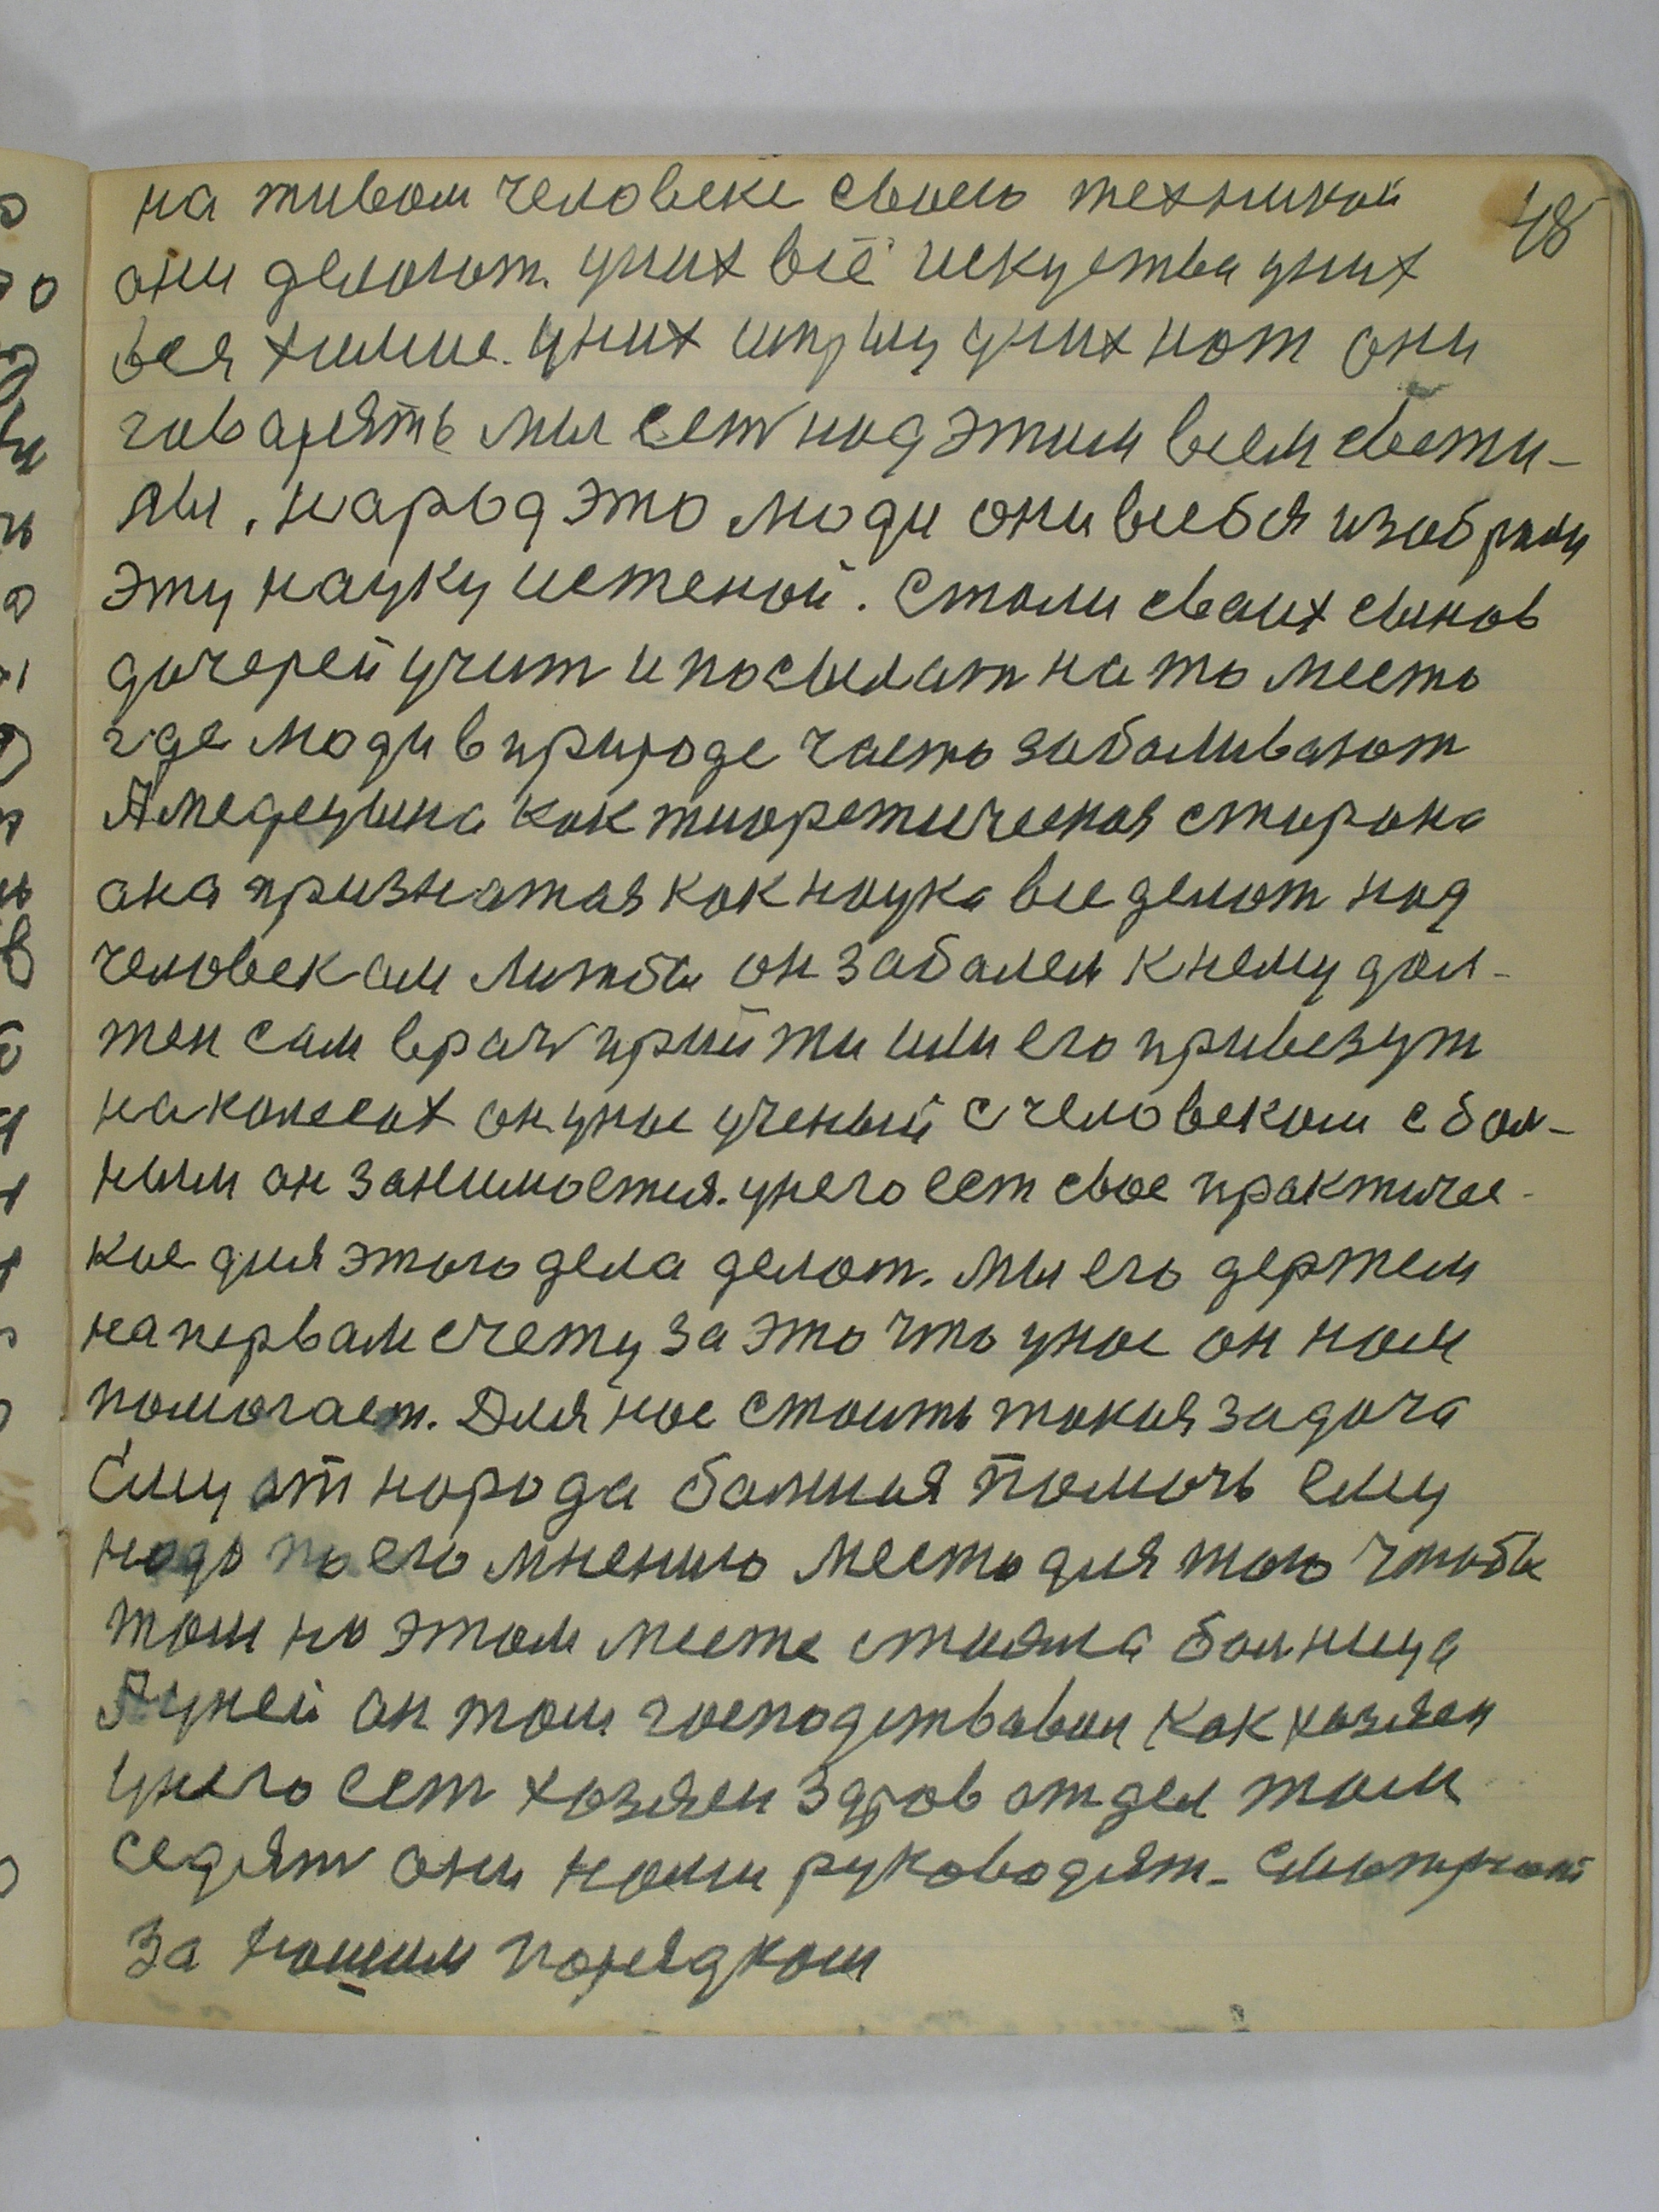 48
на живом человеке своею техникой
они делоют. уних всё искуства уних
вся химие. уних шприц уних нот они
гаварять мы ест над этим всем свети-
лы. народ это люди они в себя изобрали
эту науку истеной. Стали сваих сынов
дочерей учит и посылат на то место
где люди в природе часто забаливают
А медецына как тиоретическая старона
она признатая как наука все делот над
человекам лижбы он забалел к нему дол-
жен сам врач прийти или его привезут
на колесах он унас ученый с человеком с бол-
ным он занимается. унего ест свое практичес-
кое для этого дела делот. мы его держем
на первам счету за это что унас он нам
помогает. Для нас стоить такая задача
Ему от народа балшая помочь ему
надо по его мнению место для того чтобы
там на этом месте стаяла болница
А уней он там господствовал как хозяен
унего ест хозяен здров отдел там
седят они нами руководят. Смотрат
за нашим порядком